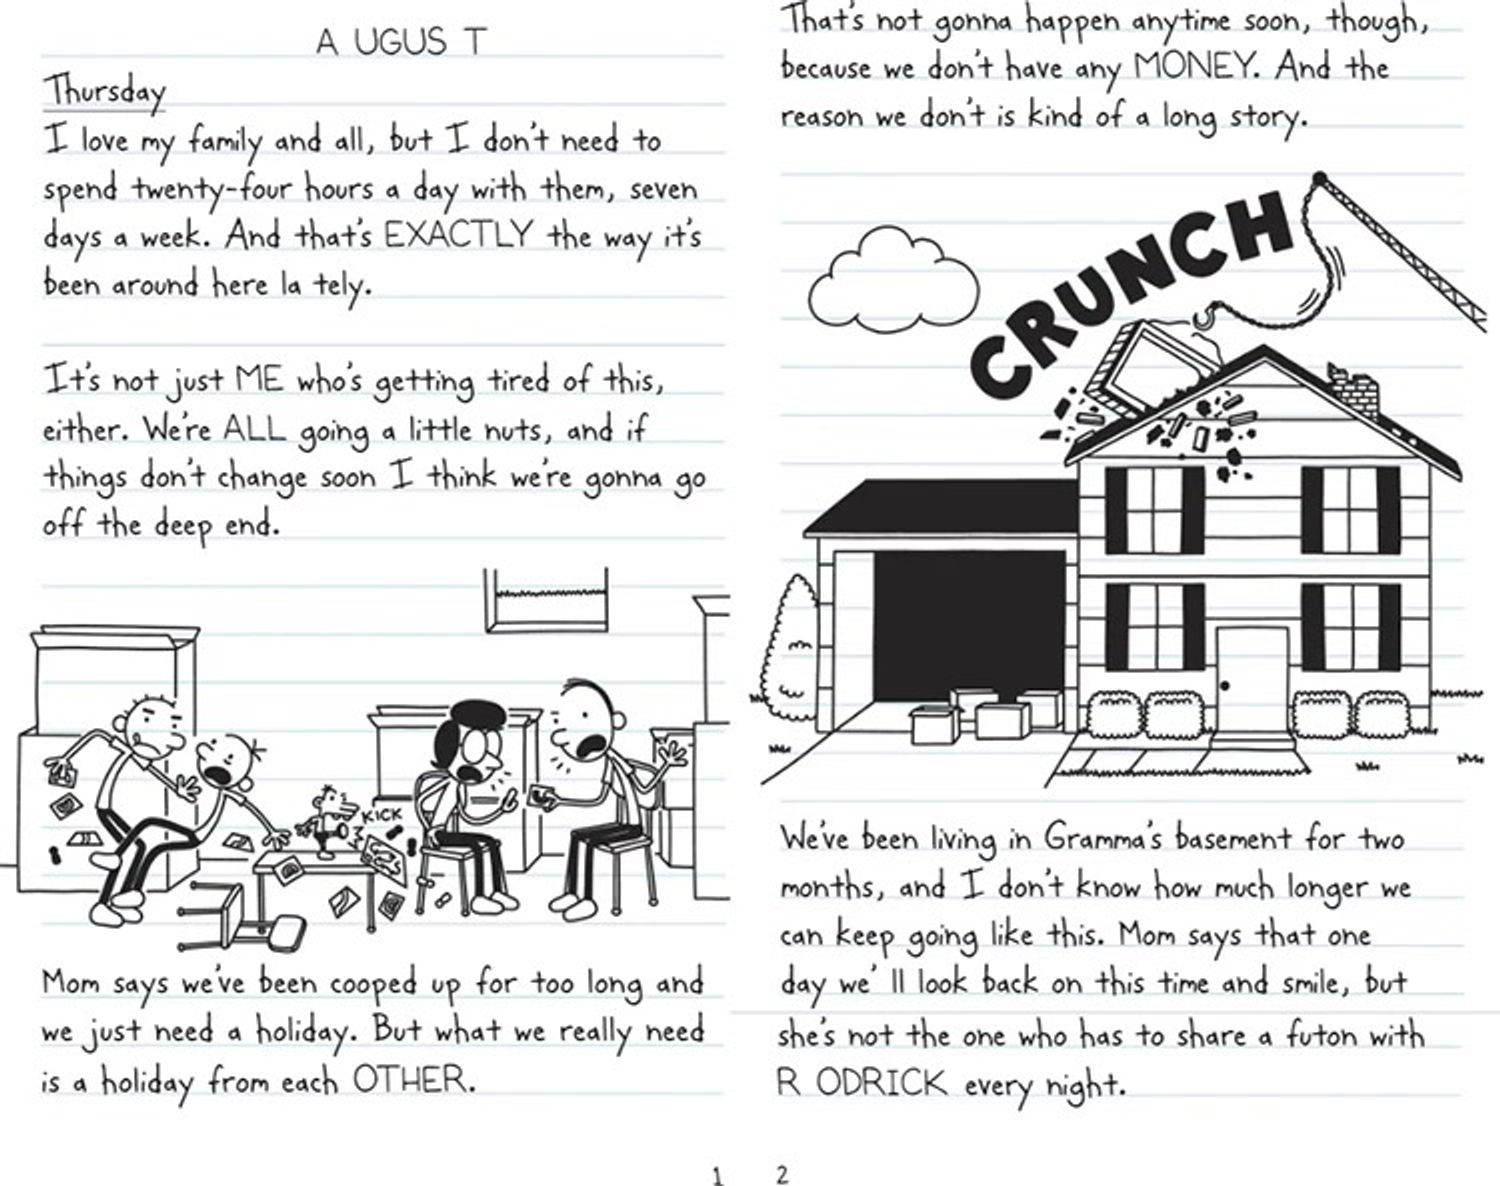 A UGUS T
Thursday
I love my family and all, but I don't need to
spend twenty-four hours a day with them, seven
days a week. And that's EXACTLY the way it's
been around here la tely.
It's not just ME who's getting tired of this,
either. We're ALL going a little nuts, and if
things don't change soon I think we're gonna go
off the deep end.
KICK
Mom says we've been cooped up for too long and
we just need a holiday. But what we really need
is a holiday from each OTHER.
1
That's not gonna happen anytime soon, though,
because we don't have any MONEY. And the
reason we don't is kind of a long story.
CRUNCH
We've been living in Gramma's basement for two
months, and I don't know how much longer we
can keep going like this. Mom says that one
day we' ll look back on this time and smile, but
she's not the one who has to share a futon with
R ODRICK every night.
2